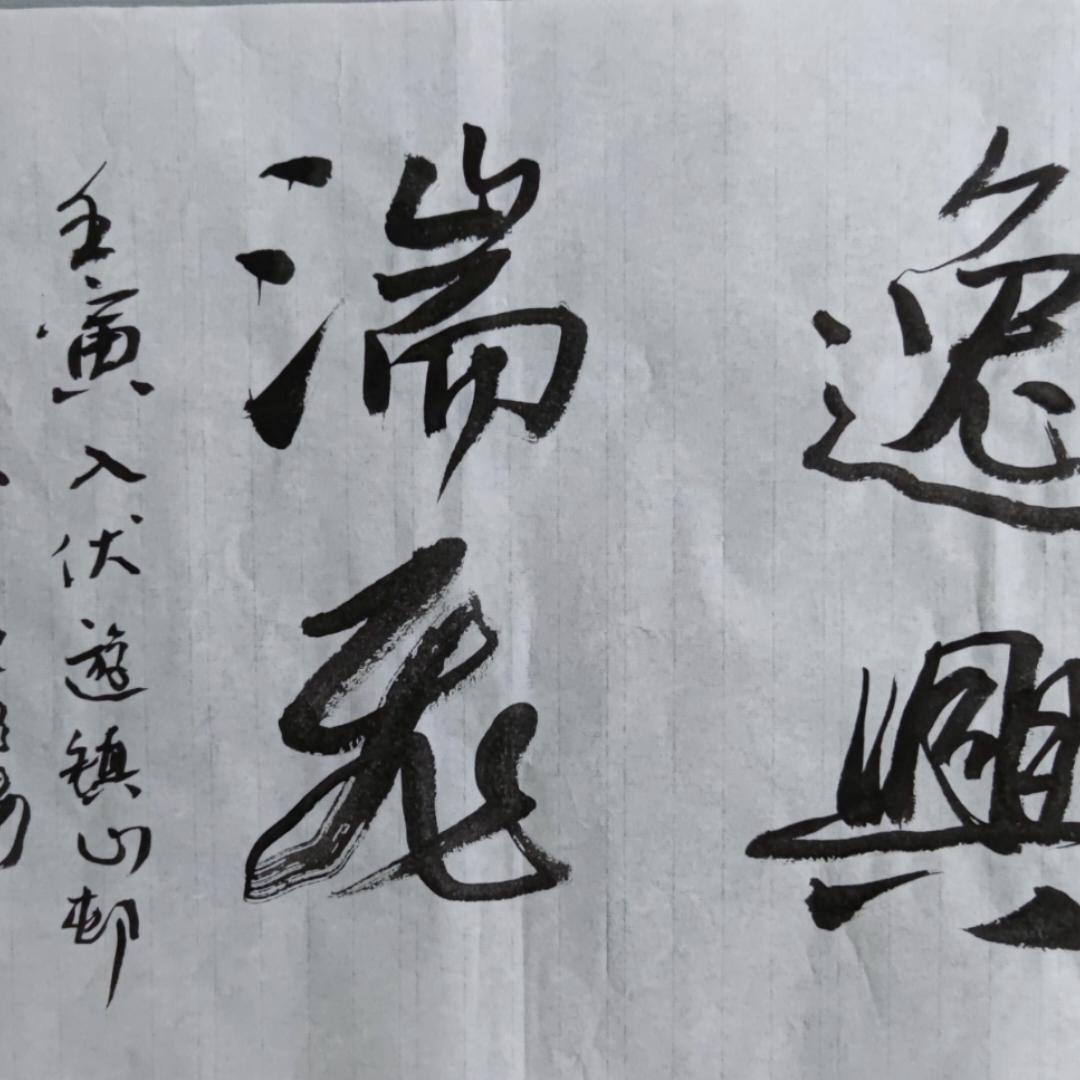 逸興
湍飛
壬寅入伏遊鎮山邨